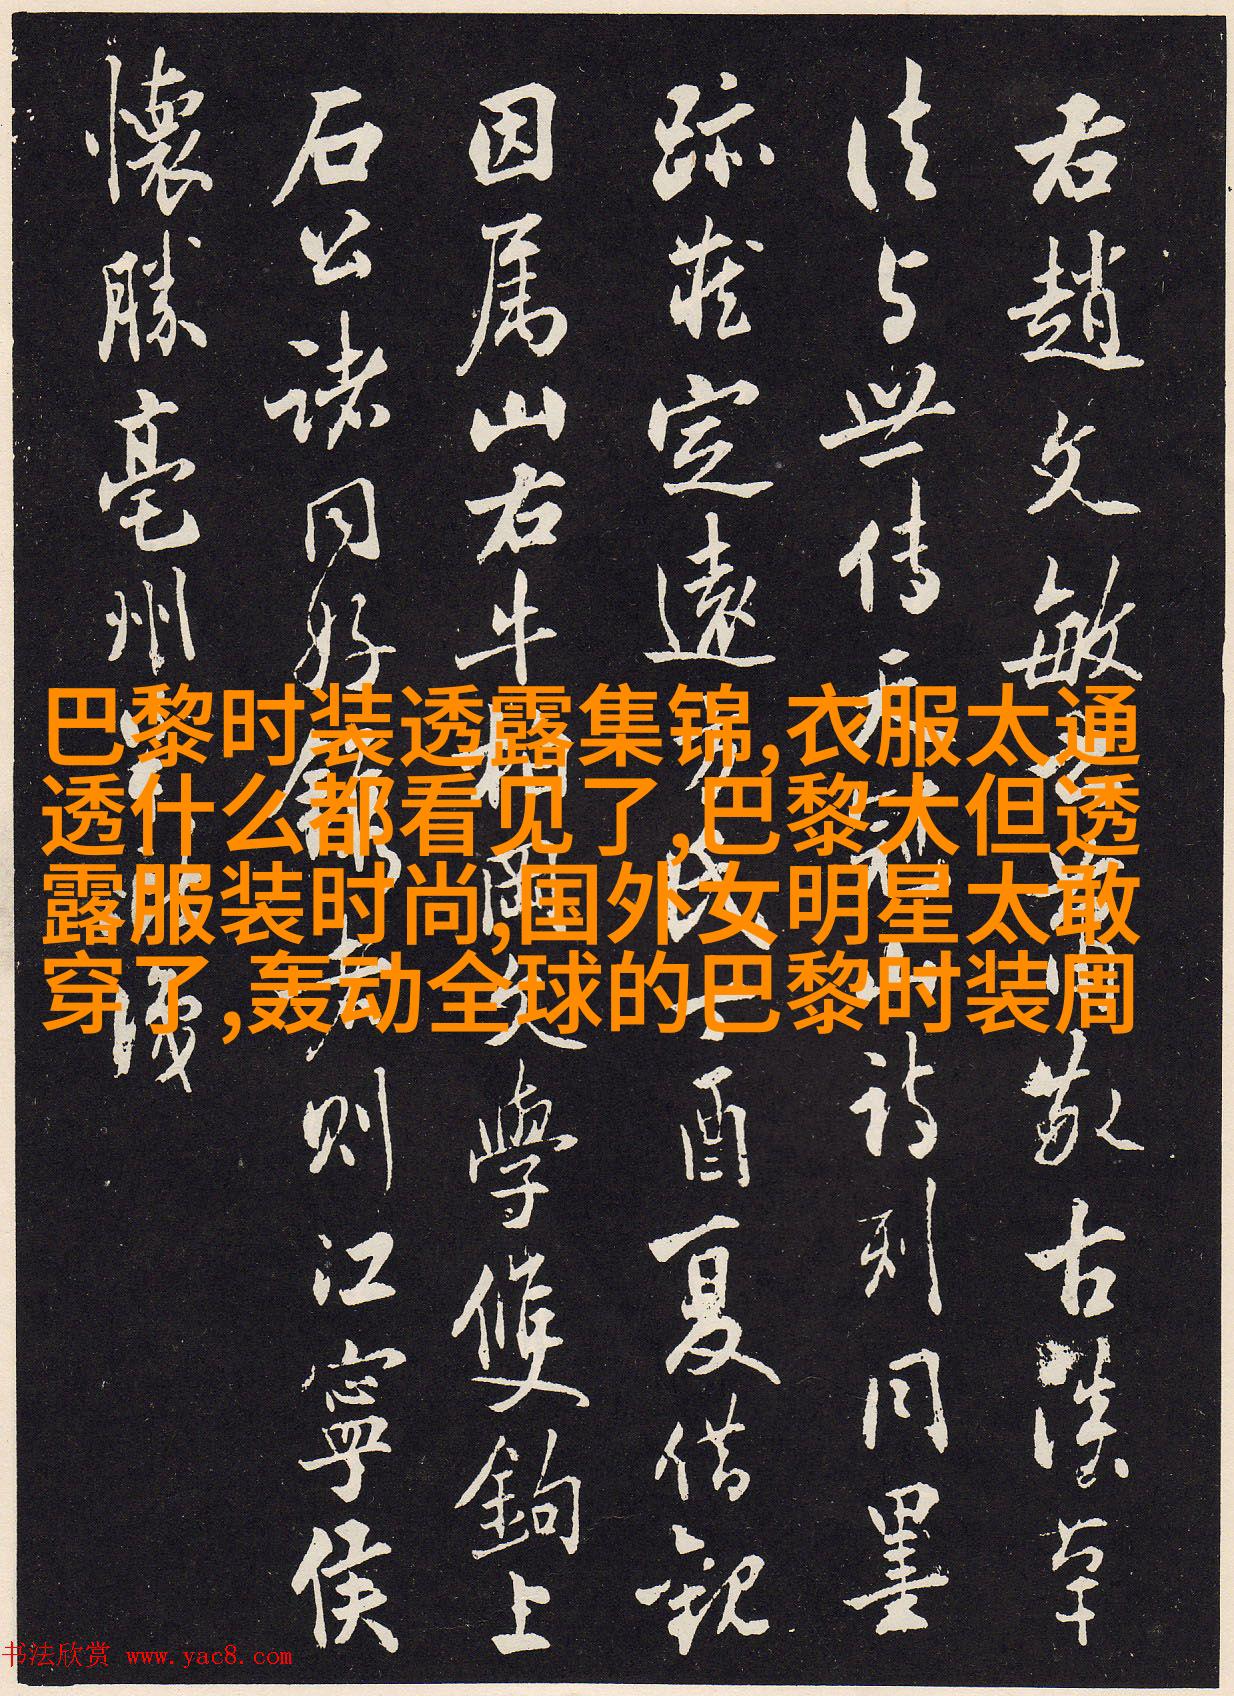 右趙文敏古漢草
法与世傳天山詩刻同墨
跡藏定遠方氏丁酉夏借觀
因属山右牛相文學鉤上
石公諸同好則江寧侯
懷勝亳州識
巴黎时装透露集锦,衣服太通
透什么都看见了,巴黎大但透
露服装时尚,国外女明星太敢
穿了,轰动全球的巴黎时装周
书法欣赏 www.yac8.com